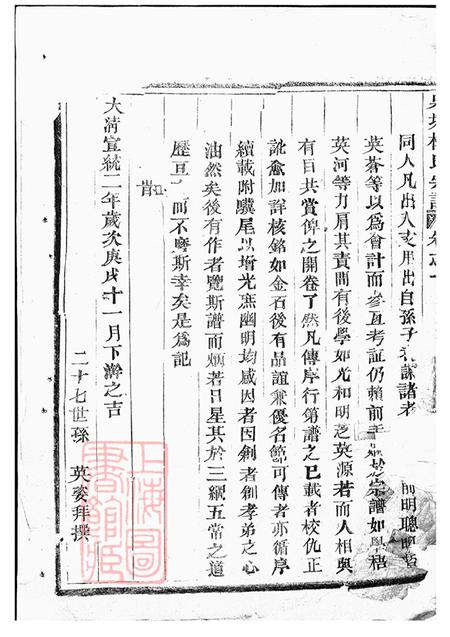 同人凡出入支用出自孫子
英蒼等以為會計而參互考証仍賴前主宗譜如學梧
英河等力肩其責間有後學如光和明芝英源若而人相與
有目共賞俾之開卷了然凡傳序行第譜之已載者校仇正
訛愈加詳核銘如金石後有品誼兼優名節可傳者亦循序
續載附驥尾以增光庶幽明均感因者因創者創孝弟之心
油然矣後有作者覽斯譜而炳若日星其於三綱五常之道
歷亘而不磨斯幸矣是為記
大淸宣統二年歲次庚戌十一月下澣之吉
二十七世孫 英姿拜撰
上海圖書館藏